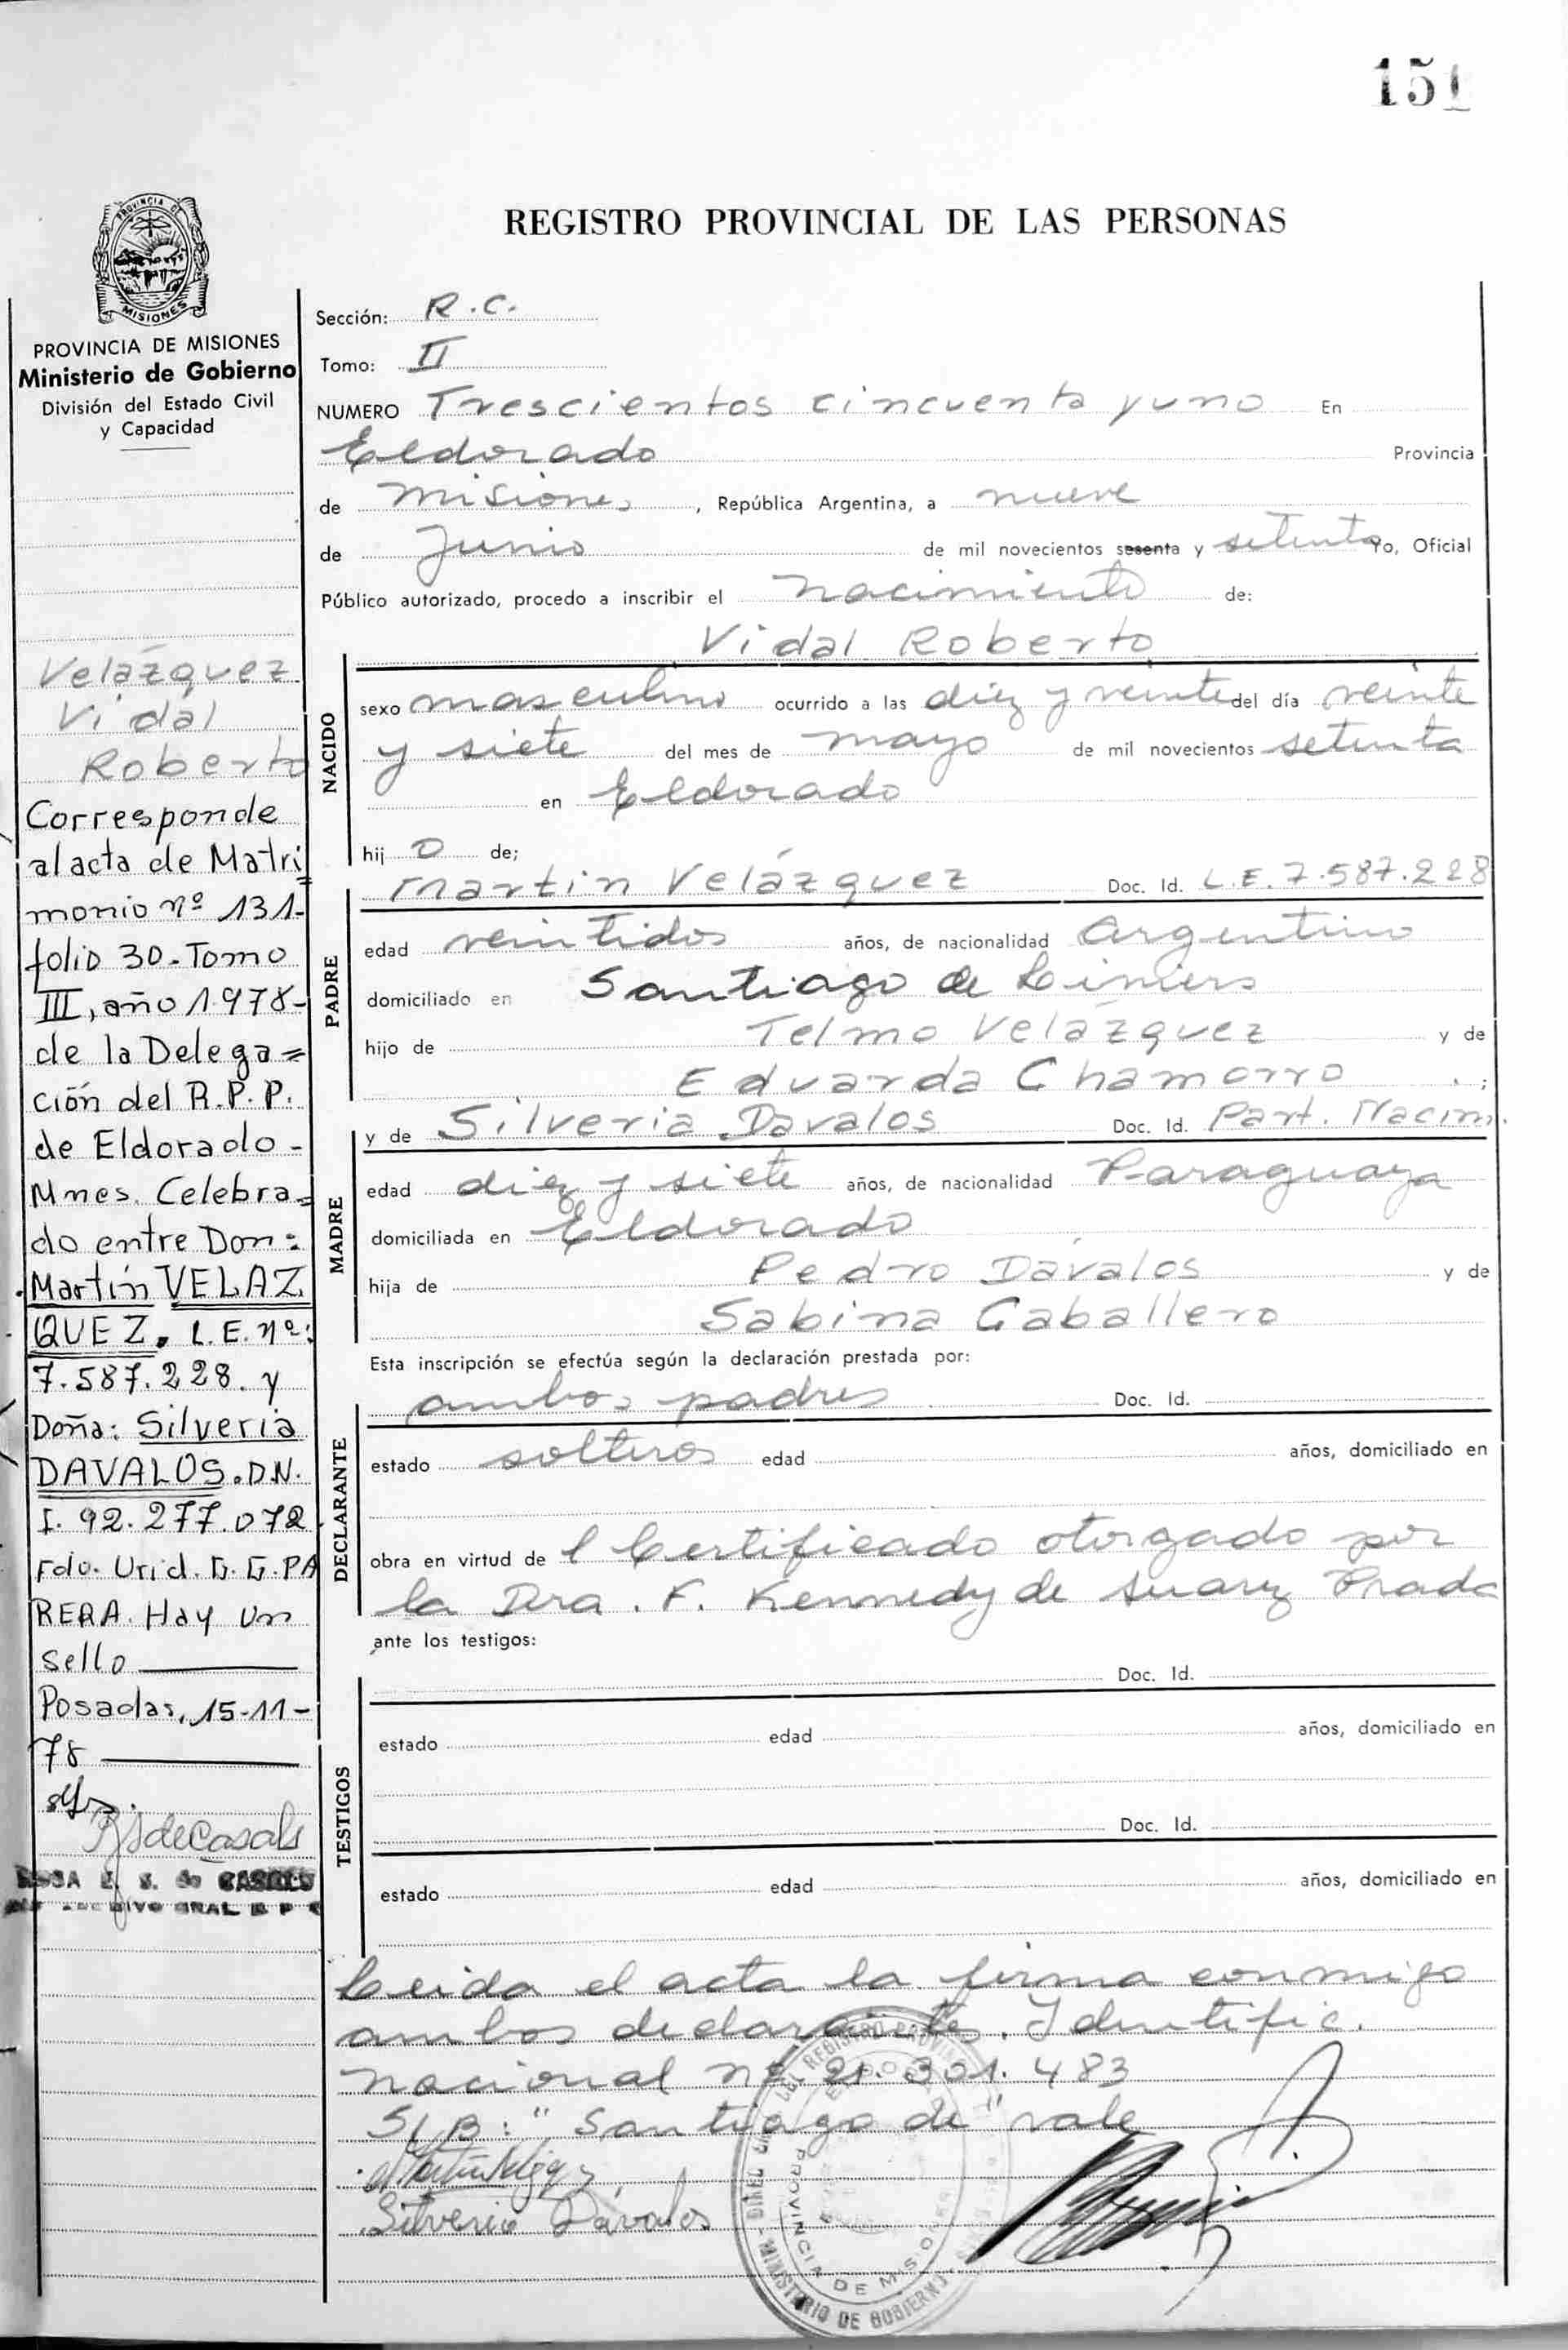 151
PROVINCIA DE
MISIONES
PROVINCIA DE MISIONES
Ministerio de Gobierno
División del Estado Civil
y Capacidad
Velázquez
Vidal
Roberto
Corresponde
al acta de Matri
monio nº 131-
folio 30-Tomo
III, año 1978-
de la Delega=
ción del R.P.P.
de Eldorado-
Mnes. Celebra=
do entre Don:
Martín VELAZ
QUEZ. L.E. nº:
7.587.228. y
Doña: Silveria
DAVALOS. D.N.
I. 92.277.072
Fdo. G. G. PA
RERA. Hay un
sello
Posadas, 15-11-
78
REGISTRO PROVINCIAL DE LAS PERSONAS
Sección: R.C.
Tomo: II
NUMERO Trescientos cincuenta y uno En
Eldorado Provincia
de Misiones, República Argentina, a nueve
de Junio de mil novecientos sesenta y setenta Yo, Oficial
Público autorizado, procedo a inscribir el nacimiento de:
Vidal Roberto
NACIDO
sexo masculino ocurrido a las diez y veinte del día veinte
y siete del mes de mayo de mil novecientos setenta
en Eldorado
hij o de;
PADRE
Martin Velázquez Doc. Id. L.E. 7.587.228
edad veintidos años, de nacionalidad Argentino
domiciliado en Santiago de Liniers
hijo de Telmo Velázquez y de
Eduarda Chamorro ;
MADRE
y de Silveria Davalos Doc. Id. Part. Nacim.
edad diez y siete años, de nacionalidad Paraguaya
domiciliada en Eldorado
hija de Pedro Davalos y de
Sabina Caballero
Esta inscripción se efectúa según la declaración prestada por:
DECLARANTE
ambos padres Doc. Id.
estado solteros edad años, domiciliado en
obra en virtud de l Certificado otorgado por
la Dra. F. Kennedy de Suarez Prada
ante los testigos:
TESTIGOS
Doc. Id.
estado edad años, domiciliado en
Doc. Id.
estado edad años, domiciliado en
Leida el acta la firma conmigo
ambos declarantes. Identific.
nacional nº 21.301.483
S/B: "Santiago de" vale
Silveria Dávalos
PROVINCIA DE MISIONES
MINISTERIO DE GOBIERNO